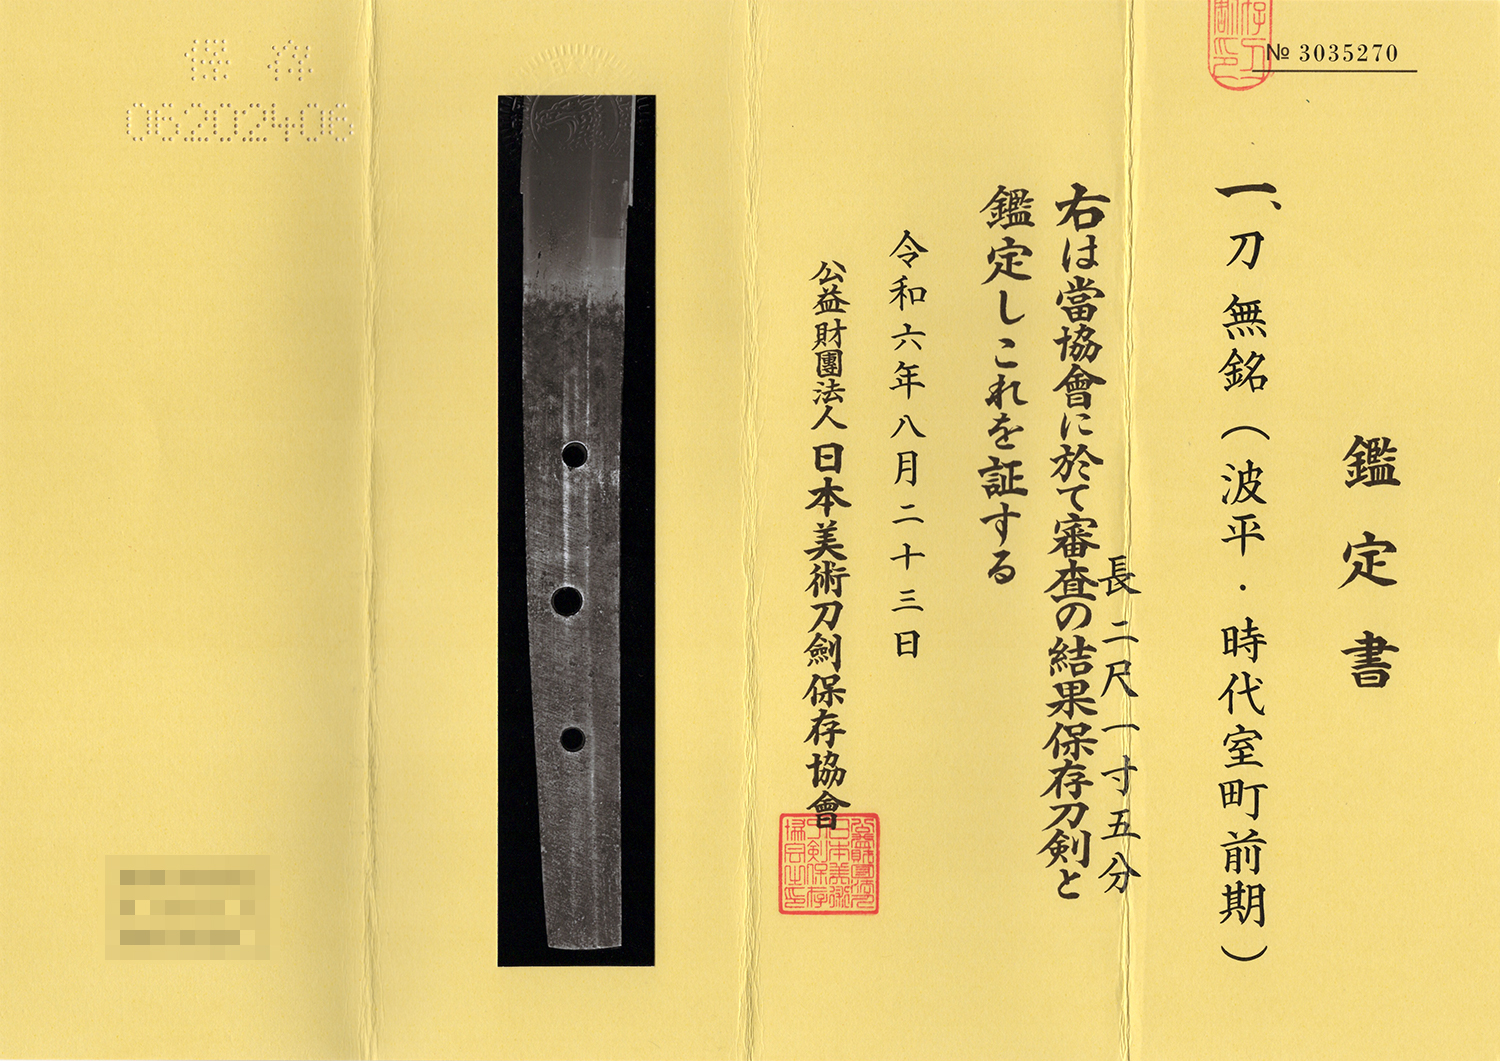 № 3035270
鑑定書
一、刀 無銘（波平・時代室町前期）
長 二尺一寸五分
右は當協會に於て審査の結果保存刀剣と
鑑定しこれを証する
令和六年八月二十三日
公益財團法人 日本美術刀劍保存協會
保存
06202406